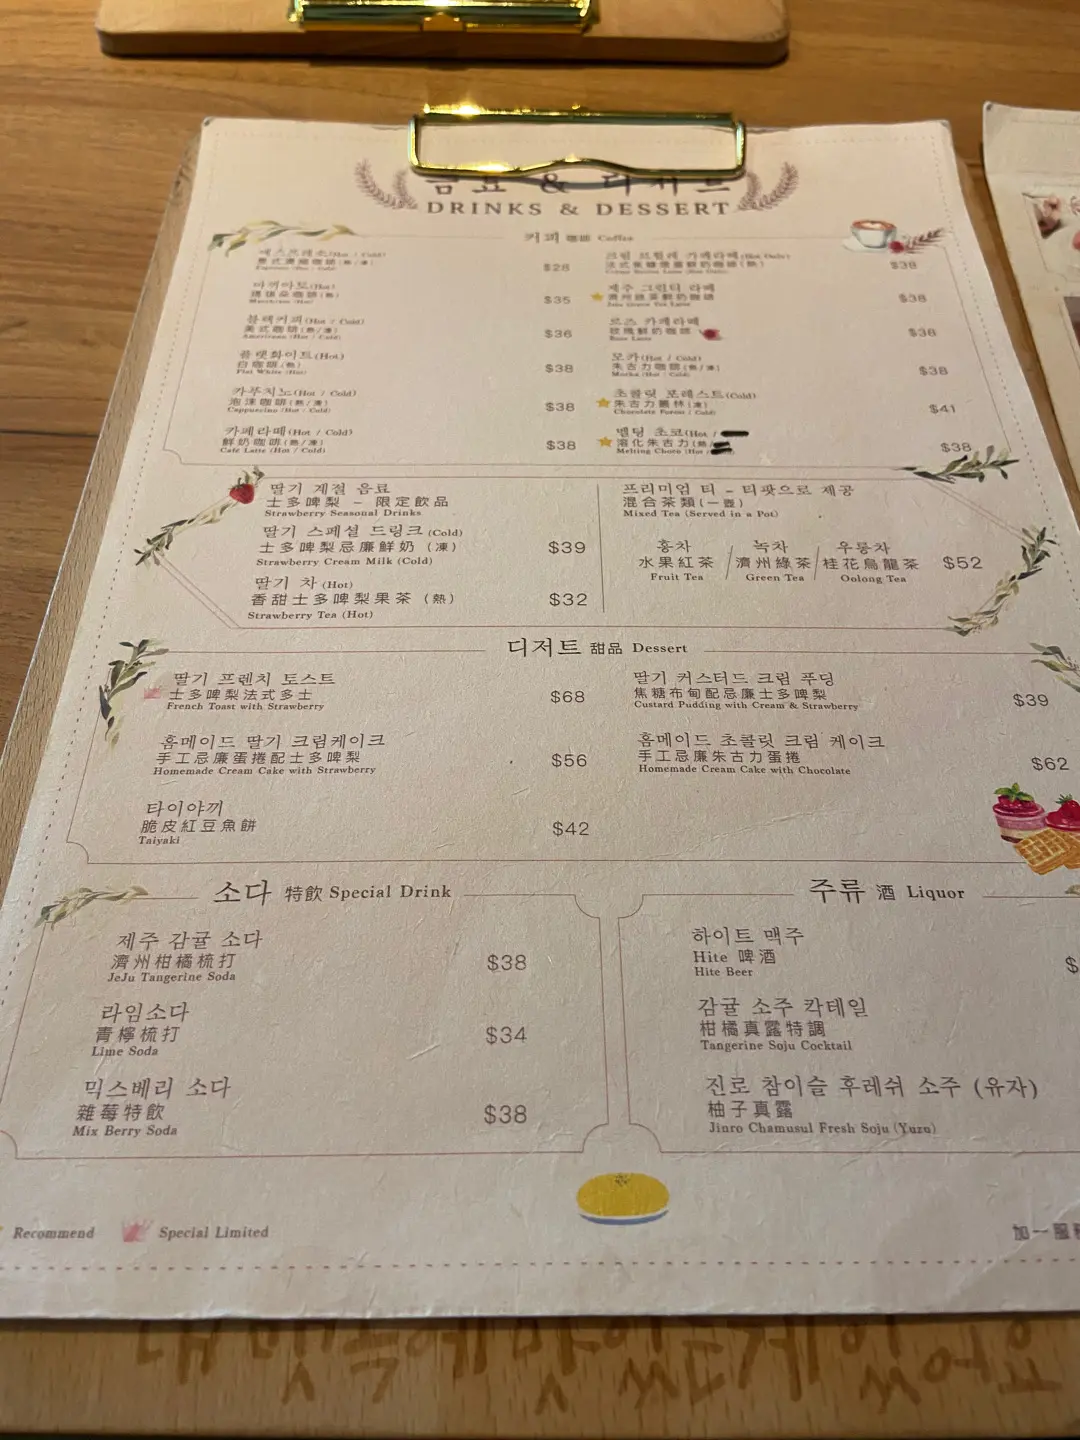 음료 & 디저트
DRINKS & DESSERT
커피 咖啡 Coffee
에스프레소(Hot / Cold)
意式濃縮咖啡(熱/凍)
Espresso (Hot / Cold)
$28
마끼아또(Hot)
瑪琪朵咖啡(熱)
Macchiato (Hot)
$35
블랙커피(Hot / Cold)
美式咖啡(熱/凍)
Americano (Hot / Cold)
$36
플랫화이트(Hot)
白咖啡(熱)
Flat White (Hot)
$38
카푸치노(Hot / Cold)
泡沫咖啡(熱/凍)
Cappuccino (Hot / Cold)
$38
카페라떼(Hot / Cold)
鮮奶咖啡(熱/凍)
Café Latte (Hot / Cold)
$38
크림 브륄레 카페라떼(Hot Only)
法式焦糖燉蛋鮮奶咖啡(熱)
Crème Brulee Latte (Hot Only)
$38
제주 그린티 라떼
濟州綠茶鮮奶咖啡
Jeju Green Tea Latte
$38
로즈 카페라떼
玫瑰鮮奶咖啡
Rose Latte
$38
모카(Hot / Cold)
朱古力咖啡(熱/凍)
Mocha (Hot / Cold)
$38
초콜릿 포레스트(Cold)
朱古力叢林(凍)
Chocolate Forest (Cold)
$41
멜팅 초코(Hot /
溶化朱古力(熱/
Melting Choco (Hot /
$38
딸기 계절 음료
士多啤梨 – 限定飲品
Strawberry Seasonal Drinks
딸기 스페셜 드링크(Cold)
士多啤梨忌廉鮮奶 (凍)
Strawberry Cream Milk (Cold)
$39
딸기 차(Hot)
香甜士多啤梨果茶 (熱)
Strawberry Tea (Hot)
$32
프리미엄 티 – 티팟으로 제공
混合茶類(一壺)
Mixed Tea (Served in a Pot)
홍차 / 녹차 / 우롱차
水果紅茶 / 濟州綠茶 / 桂花烏龍茶
Fruit Tea Green Tea Oolong Tea
$52
디저트 甜品 Dessert
딸기 프렌치 토스트
士多啤梨法式多士
French Toast with Strawberry
$68
홈메이드 딸기 크림케이크
手工忌廉蛋捲配士多啤梨
Homemade Cream Cake with Strawberry
$56
타이야끼
脆皮紅豆魚餅
Taiyaki
$42
딸기 커스터드 크림 푸딩
焦糖布甸配忌廉士多啤梨
Custard Pudding with Cream & Strawberry
$39
홈메이드 초콜릿 크림 케이크
手工忌廉朱古力蛋捲
Homemade Cream Cake with Chocolate
$62
소다 特飲 Special Drink
제주 감귤 소다
濟州柑橘梳打
JeJu Tangerine Soda
$38
라임소다
青檸梳打
Lime Soda
$34
믹스베리 소다
雜莓特飲
Mix Berry Soda
$38
주류 酒 Liquor
하이트 맥주
Hite 啤酒
Hite Beer
$
감귤 소주 칵테일
柑橘真露特調
Tangerine Soju Cocktail
진로 참이슬 후레쉬 소주 (유자)
柚子真露
Jinro Chamusul Fresh Soju (Yuzu)
Recommend
Special Limited
加一服務